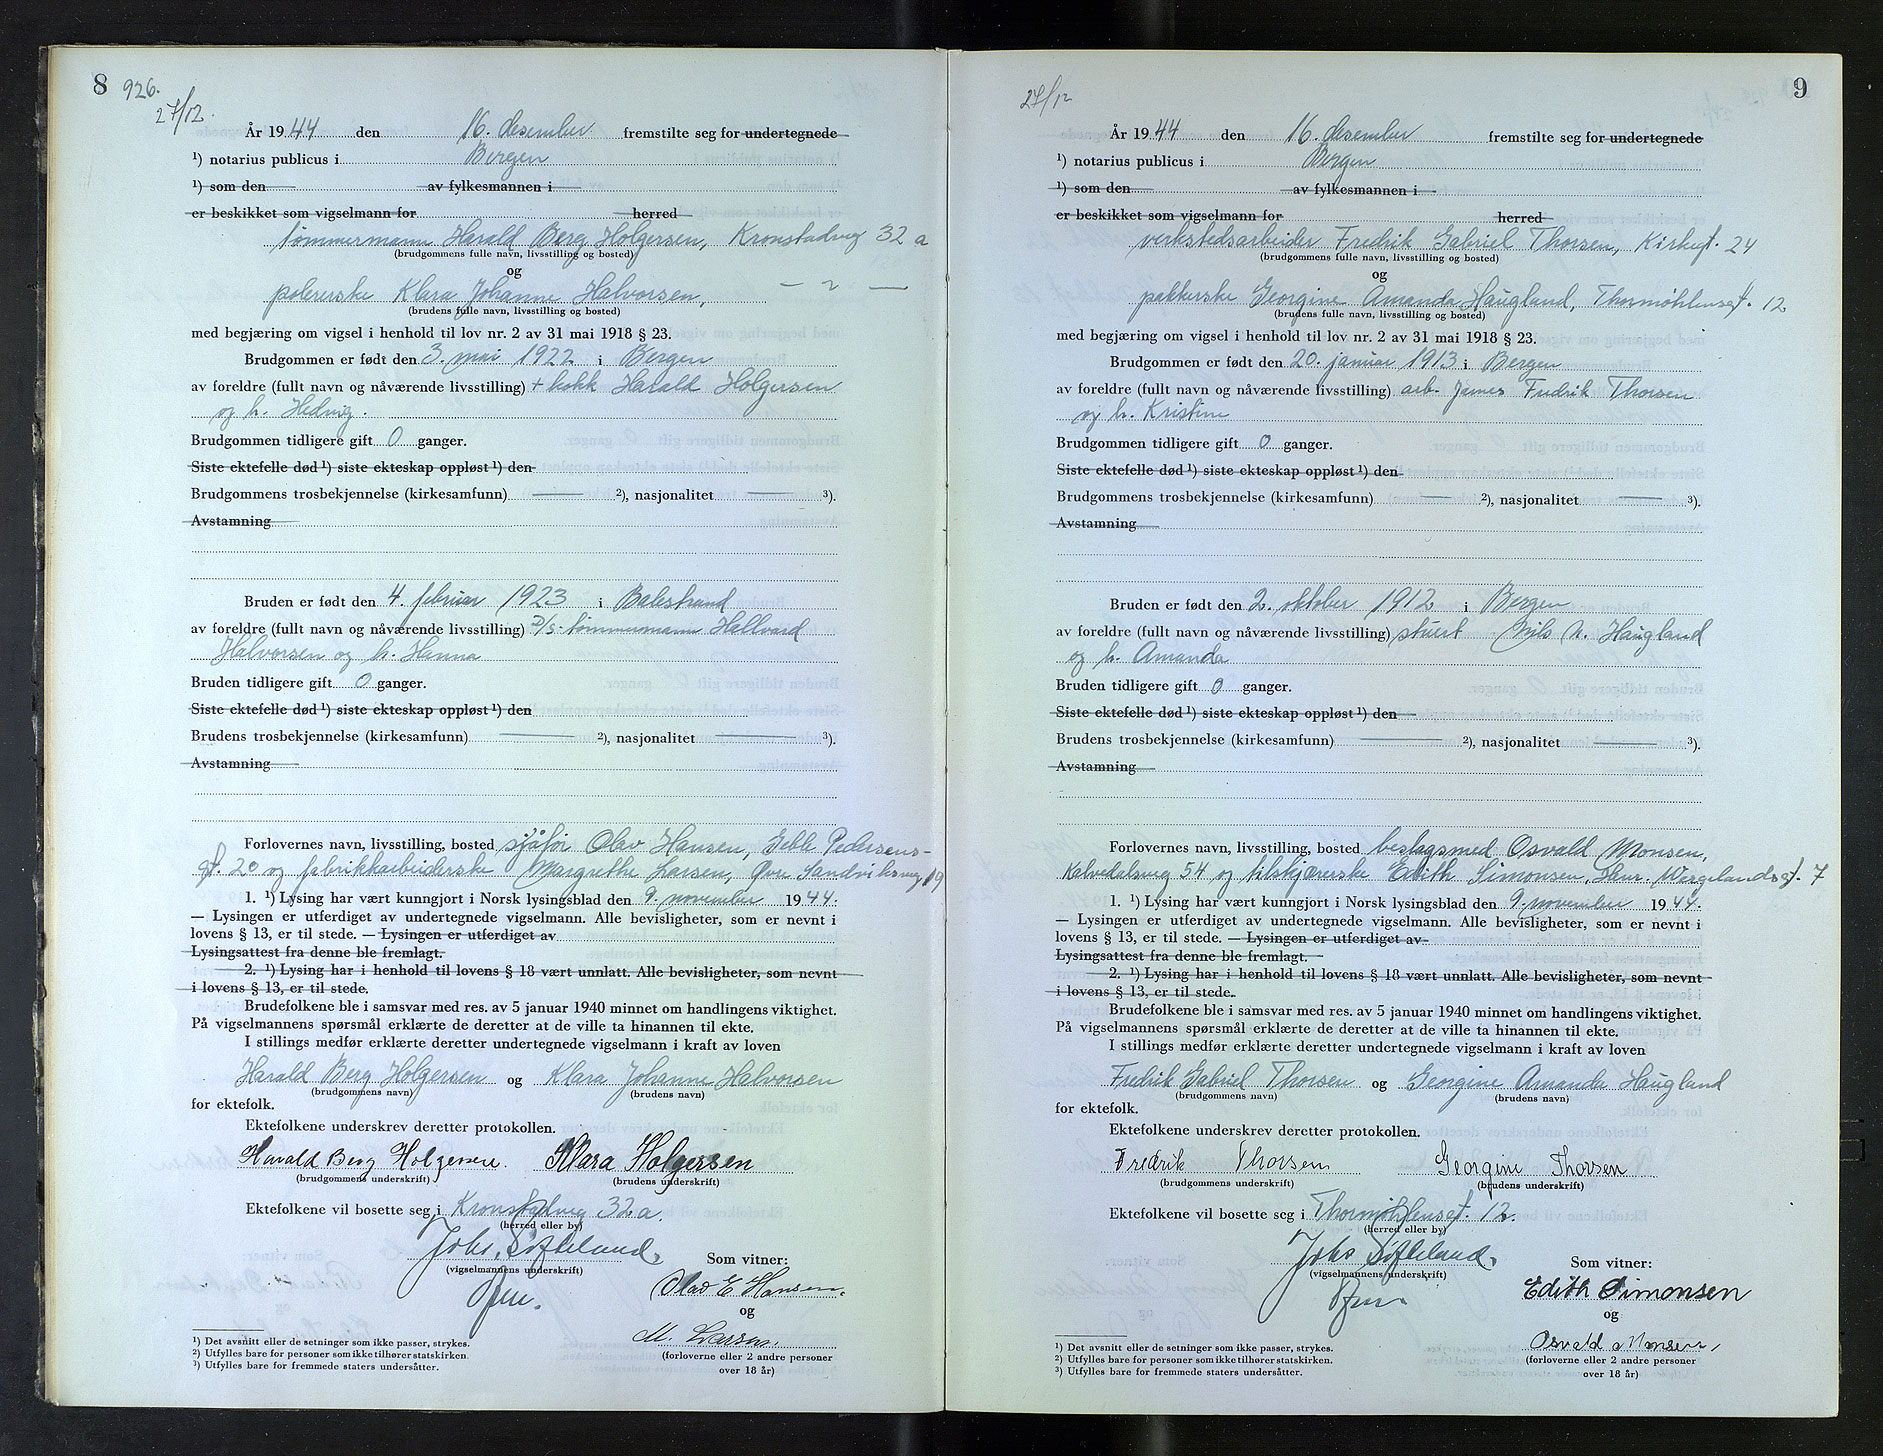 8 926.
27/12.
År 1944 den 16. desember fremstilte seg for undertegnede
¹) notarius publicus i Bergen
¹) som den av fylkesmannen i
er beskikket som vigselmann for herred
tømmermann Harald Berg Holgersen, Kronstadveg 32 a
(brudgommens fulle navn, livsstilling og bosted)
og
polererske Klara Johanne Halvorsen, — " —
(brudens fulle navn, livsstilling og bosted)
med begjæring om vigsel i henhold til lov nr. 2 av 31 mai 1918 § 23.
Brudgommen er født den 3. mai 1922 i Bergen
av foreldre (fullt navn og nåværende livsstilling) + kokk Harald Holgersen
og h. Hedvig.
Brudgommen tidligere gift 0 ganger.
Siste ektefelle død ¹) siste ekteskap oppløst ¹) den
Brudgommens trosbekjennelse (kirkesamfunn) — ²), nasjonalitet — ³).
Avstamning
Bruden er født den 4. februar 1923 i Balestrand
av foreldre (fullt navn og nåværende livsstilling) D/s. tømmermann Hallvard
Halvorsen og h. Hanna
Bruden tidligere gift 0 ganger.
Siste ektefelle død ¹) siste ekteskap oppløst ¹) den
Brudens trosbekjennelse (kirkesamfunn) — ²), nasjonalitet — ³).
Avstamning
Forlovernes navn, livsstilling, bosted sjåfør Olav Hansen, Gelle Pedersens-
gt. 20 og fabrikkarbeiderske Margrethe Larsen, Øvre Sandviksveg 19
1. ¹) Lysing har vært kunngjort i Norsk lysingsblad den 9. november 1944.
— Lysingen er utferdiget av undertegnede vigselmann. Alle bevisligheter, som er nevnt i
lovens § 13, er til stede. — Lysingen er utferdiget av
Lysingsattest fra denne ble fremlagt.
2. ¹) Lysing har i henhold til lovens § 18 vært unnlatt. Alle bevisligheter, som nevnt
i lovens § 13, er til stede.
Brudefolkene ble i samsvar med res. av 5 januar 1940 minnet om handlingens viktighet.
På vigselmannens spørsmål erklærte de deretter at de ville ta hinannen til ekte.
I stillings medfør erklærte deretter undertegnede vigselmann i kraft av loven
Harald Berg Holgersen og Klara Johanne Halvorsen
(brudgommens navn) (brudens navn)
for ektefolk.
Ektefolkene underskrev deretter protokollen.
Harald Berg Holgersen. Klara Holgersen
(brudgommens underskrift) (brudens underskrift)
Ektefolkene vil bosette seg i Kronstadveg 32 a.
(herred eller by)
Johs. Sifteland.
(vigselmannens underskrift)
Som vitner:
Olav E Hansen.
og
M. Larsen.
(forloverne eller 2 andre personer
over 18 år)
¹) Det avsnitt eller de setninger som ikke passer, strykes.
²) Utfylles bare for personer som ikke tilhører statskirken.
³) Utfylles bare for fremmede staters undersåtter.
27/12 9
År 1944 den 16. desember fremstilte seg for undertegnede
¹) notarius publicus i Bergen
¹) som den av fylkesmannen i
er beskikket som vigselmann for herred
verkstedsarbeider Fredrik Gabriel Thorsen, Kirkegt. 24
(brudgommens fulle navn, livsstilling og bosted)
og
pakkerske Georgine Amanda Haugland, Thormøhlensgt. 12
(brudens fulle navn, livsstilling og bosted)
med begjæring om vigsel i henhold til lov nr. 2 av 31 mai 1918 § 23.
Brudgommen er født den 20. januar 1913 i Bergen
av foreldre (fullt navn og nåværende livsstilling) arb. James Fredrik Thorsen
og h. Kristine
Brudgommen tidligere gift 0 ganger.
Siste ektefelle død ¹) siste ekteskap oppløst ¹) den
Brudgommens trosbekjennelse (kirkesamfunn) — ²), nasjonalitet — ³).
Avstamning
Bruden er født den 2. oktober 1912 i Bergen
av foreldre (fullt navn og nåværende livsstilling) stuert Nils N. Haugland
og h. Amanda
Bruden tidligere gift 0 ganger.
Siste ektefelle død ¹) siste ekteskap oppløst ¹) den
Brudens trosbekjennelse (kirkesamfunn) — ²), nasjonalitet — ³).
Avstamning
Forlovernes navn, livsstilling, bosted beslagsmed Osvald Monsen,
Kalvedalsveg 54 og tilskjærerske Edith Simonsen, Henr. Wergelandsgt. 7
1. ¹) Lysing har vært kunngjort i Norsk lysingsblad den 9. november 1944.
— Lysingen er utferdiget av undertegnede vigselmann. Alle bevisligheter, som er nevnt i
lovens § 13, er til stede. — Lysingen er utferdiget av
Lysingsattest fra denne ble fremlagt.
2. ¹) Lysing har i henhold til lovens § 18 vært unnlatt. Alle bevisligheter, som nevnt
i lovens § 13, er til stede.
Brudefolkene ble i samsvar med res. av 5 januar 1940 minnet om handlingens viktighet.
På vigselmannens spørsmål erklærte de deretter at de ville ta hinannen til ekte.
I stillings medfør erklærte deretter undertegnede vigselmann i kraft av loven
Fredrik Gabriel Thorsen og Georgine Amanda Haugland
(brudgommens navn) (brudens navn)
for ektefolk.
Ektefolkene underskrev deretter protokollen.
Fredrik Thorsen Georgine Thorsen
(brudgommens underskrift) (brudens underskrift)
Ektefolkene vil bosette seg i Thormøhlensgt. 12.
(herred eller by)
Johs Sifteland.
(vigselmannens underskrift)
Som vitner:
Edith Simonsen
og
Osvald Monsen,
(forloverne eller 2 andre personer
over 18 år)
¹) Det avsnitt eller de setninger som ikke passer, strykes.
²) Utfylles bare for personer som ikke tilhører statskirken.
³) Utfylles bare for fremmede staters undersåtter.